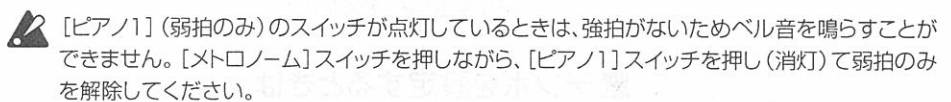 [ピアノ1](弱拍のみ)のスイッチが点灯しているときは、強拍がないためベル音を鳴らすことが
できません。[メトロノーム]スイッチを押しながら、[ピアノ1]スイッチを押し(消灯)て弱拍のみ
を解除してください。